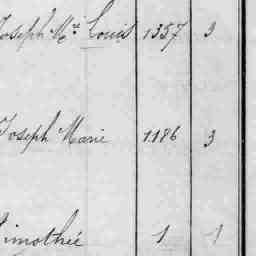 Joseph Mie Louis 1357 3
Joseph Marie 1186 3
Timothée 1 1